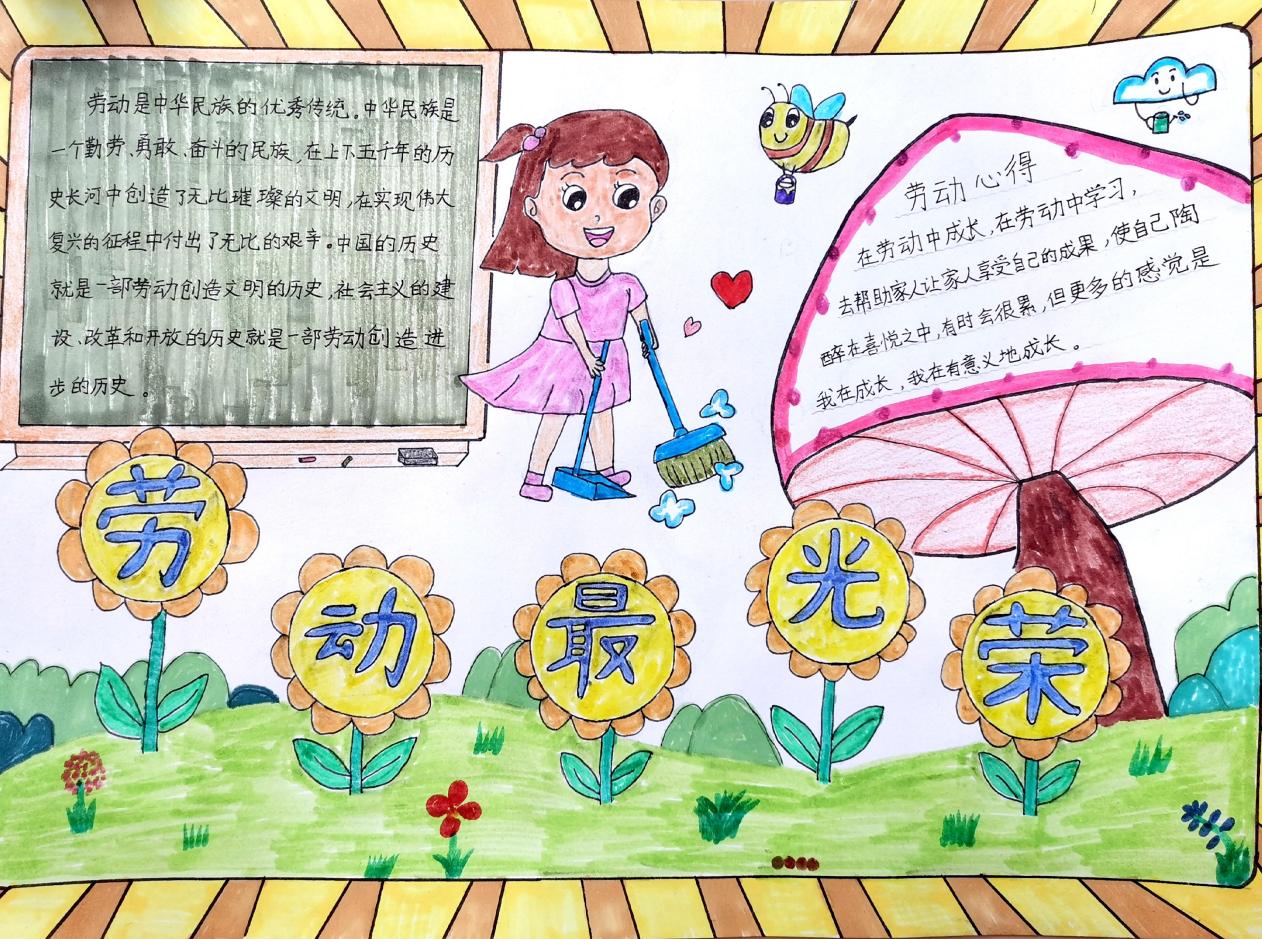 劳动是中华民族的优秀传统。中华民族是
一个勤劳、勇敢、奋斗的民族,在上下五千年的历
史长河中创造了无比璀璨的文明,在实现伟大
复兴的征程中付出了无比的艰辛。中国的历史
就是一部劳动创造文明的历史,社会主义的建
设、改革和开放的历史就是一部劳动创造进
步的历史。
劳动心得
在劳动中成长,在劳动中学习,
去帮助家人让家人享受自己的成果,使自己陶
醉在喜悦之中,有时会很累,但更多的感觉是
我在成长,我在有意义地成长。
劳动最光荣